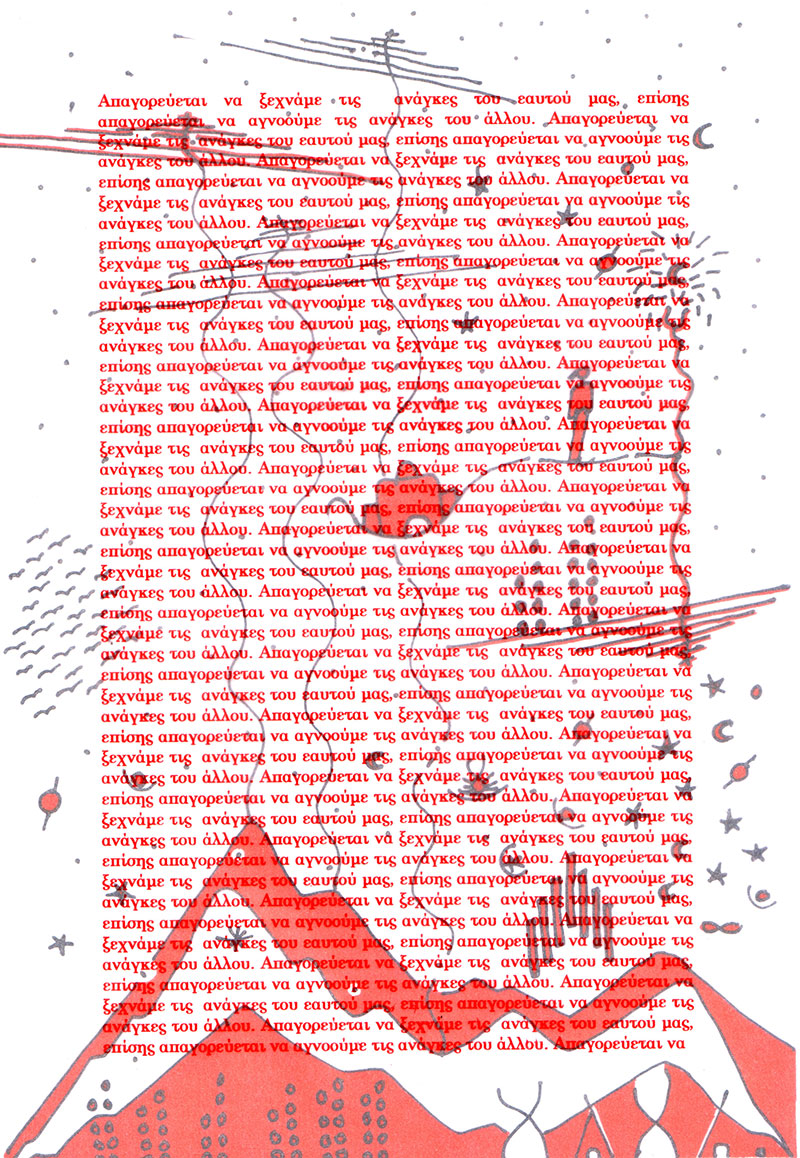 Απαγορεύεται να ξεχνάμε τις ανάγκες του εαυτού μας, επίσης
απαγορεύεται να αγνοούμε τις ανάγκες του άλλου. Απαγορεύεται να
ξεχνάμε τις ανάγκες του εαυτού μας, επίσης απαγορεύεται να αγνοούμε τις
ανάγκες του άλλου. Απαγορεύεται να ξεχνάμε τις ανάγκες του εαυτού μας,
επίσης απαγορεύεται να αγνοούμε τις ανάγκες του άλλου. Απαγορεύεται να
ξεχνάμε τις ανάγκες του εαυτού μας, επίσης απαγορεύεται να αγνοούμε τις
ανάγκες του άλλου. Απαγορεύεται να ξεχνάμε τις ανάγκες του εαυτού μας,
επίσης απαγορεύεται να αγνοούμε τις ανάγκες του άλλου. Απαγορεύεται να
ξεχνάμε τις ανάγκες του εαυτού μας, επίσης απαγορεύεται να αγνοούμε τις
ανάγκες του άλλου. Απαγορεύεται να ξεχνάμε τις ανάγκες του εαυτού μας,
επίσης απαγορεύεται να αγνοούμε τις ανάγκες του άλλου. Απαγορεύεται να
ξεχνάμε τις ανάγκες του εαυτού μας, επίσης απαγορεύεται να αγνοούμε τις
ανάγκες του άλλου. Απαγορεύεται να ξεχνάμε τις ανάγκες του εαυτού μας,
επίσης απαγορεύεται να αγνοούμε τις ανάγκες του άλλου. Απαγορεύεται να
ξεχνάμε τις ανάγκες του εαυτού μας, επίσης απαγορεύεται να αγνοούμε τις
ανάγκες του άλλου. Απαγορεύεται να ξεχνάμε τις ανάγκες του εαυτού μας,
επίσης απαγορεύεται να αγνοούμε τις ανάγκες του άλλου. Απαγορεύεται να
ξεχνάμε τις ανάγκες του εαυτού μας, επίσης απαγορεύεται να αγνοούμε τις
ανάγκες του άλλου. Απαγορεύεται να ξεχνάμε τις ανάγκες του εαυτού μας,
επίσης απαγορεύεται να αγνοούμε τις ανάγκες του άλλου. Απαγορεύεται να
ξεχνάμε τις ανάγκες του εαυτού μας, επίσης απαγορεύεται να αγνοούμε τις
ανάγκες του άλλου. Απαγορεύεται να ξεχνάμε τις ανάγκες του εαυτού μας,
επίσης απαγορεύεται να αγνοούμε τις ανάγκες του άλλου. Απαγορεύεται να
ξεχνάμε τις ανάγκες του εαυτού μας, επίσης απαγορεύεται να αγνοούμε τις
ανάγκες του άλλου. Απαγορεύεται να ξεχνάμε τις ανάγκες του εαυτού μας,
επίσης απαγορεύεται να αγνοούμε τις ανάγκες του άλλου. Απαγορεύεται να
ξεχνάμε τις ανάγκες του εαυτού μας, επίσης απαγορεύεται να αγνοούμε τις
ανάγκες του άλλου. Απαγορεύεται να ξεχνάμε τις ανάγκες του εαυτού μας,
επίσης απαγορεύεται να αγνοούμε τις ανάγκες του άλλου. Απαγορεύεται να
ξεχνάμε τις ανάγκες του εαυτού μας, επίσης απαγορεύεται να αγνοούμε τις
ανάγκες του άλλου. Απαγορεύεται να ξεχνάμε τις ανάγκες του εαυτού μας,
επίσης απαγορεύεται να αγνοούμε τις ανάγκες του άλλου. Απαγορεύεται να
ξεχνάμε τις ανάγκες του εαυτού μας, επίσης απαγορεύεται να αγνοούμε τις
ανάγκες του άλλου. Απαγορεύεται να ξεχνάμε τις ανάγκες του εαυτού μας,
επίσης απαγορεύεται να αγνοούμε τις ανάγκες του άλλου. Απαγορεύεται να
ξεχνάμε τις ανάγκες του εαυτού μας, επίσης απαγορεύεται να αγνοούμε τις
ανάγκες του άλλου. Απαγορεύεται να ξεχνάμε τις ανάγκες του εαυτού μας,
επίσης απαγορεύεται να αγνοούμε τις ανάγκες του άλλου. Απαγορεύεται να
ξεχνάμε τις ανάγκες του εαυτού μας, επίσης απαγορεύεται να αγνοούμε τις
ανάγκες του άλλου. Απαγορεύεται να ξεχνάμε τις ανάγκες του εαυτού μας,
επίσης απαγορεύεται να αγνοούμε τις ανάγκες του άλλου. Απαγορεύεται να
ξεχνάμε τις ανάγκες του εαυτού μας, επίσης απαγορεύεται να αγνοούμε τις
ανάγκες του άλλου. Απαγορεύεται να ξεχνάμε τις ανάγκες του εαυτού μας,
επίσης απαγορεύεται να αγνοούμε τις ανάγκες του άλλου. Απαγορεύεται να
ξεχνάμε τις ανάγκες του εαυτού μας, επίσης απαγορεύεται να αγνοούμε τις
ανάγκες του άλλου. Απαγορεύεται να ξεχνάμε τις ανάγκες του εαυτού μας,
επίσης απαγορεύεται να αγνοούμε τις ανάγκες του άλλου. Απαγορεύεται να